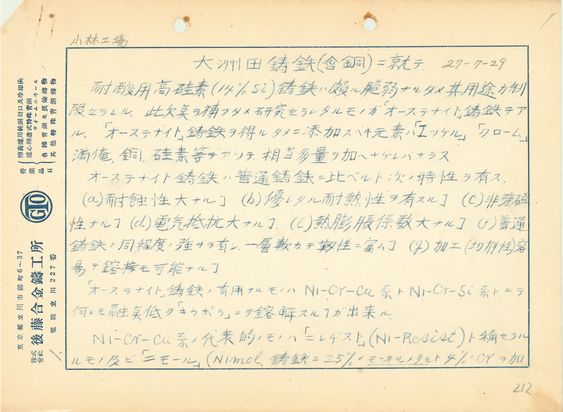 小林工場
大洲田鋳鉄(含銅)ニ就テ 27-7-29
耐酸用高硅素(14% Si)鋳鉄ハ頗ル脆弱ナルタメ其用途ガ制
限セラルル。此欠臭ヲ補フタメ研究セラレタルモノガ「オーステナイト」鋳鉄デア
ル。「オーステナイト」鋳鉄ヲ得ルタメニ添加スベキ元素ハ「ニッケル」「クローム」
満俺、銅、硅素等デアリテ相当多量ヲ加ヘナケレバナラヌ
オーステナイト鋳鉄ハ普通鋳鉄ニ比ベルト次ノ特性ヲ有ス.
(a)耐蝕性大ナル] (b)優レタル耐熱性ヲ有スル] (c)非磁
性ナル] (d)電気抵抗大ナル]. (e)熱膨脹係数大ナル] (f)普通
鋳鉄ト同程度ノ強サヲ有シ、一層軟カデ靱性ニ富ム] (g)加工(切削性)容
易デ鎔接モ可能ナル]
「オーステナイト」鋳鉄ノ有用ナルモノハ Ni-Cr-Cu系ト Ni-Cr-Si系トニテ
何レモ融臭低ク「キウポラ」ニテ鎔解スル]ガ出来ル
Ni-Cr-Cu系ノ代表的ノモノハ「ニレヂスト」(Ni-Resist)ト称セラル
ルモノ及ビ「ニモール」(Nimol. 鋳鉄ニ25%モーネルメタルト4% Crヲ加
212
営業品目
株式会社 後藤合金鑄工所
東京都立川市錦町6~37
電話立川227番